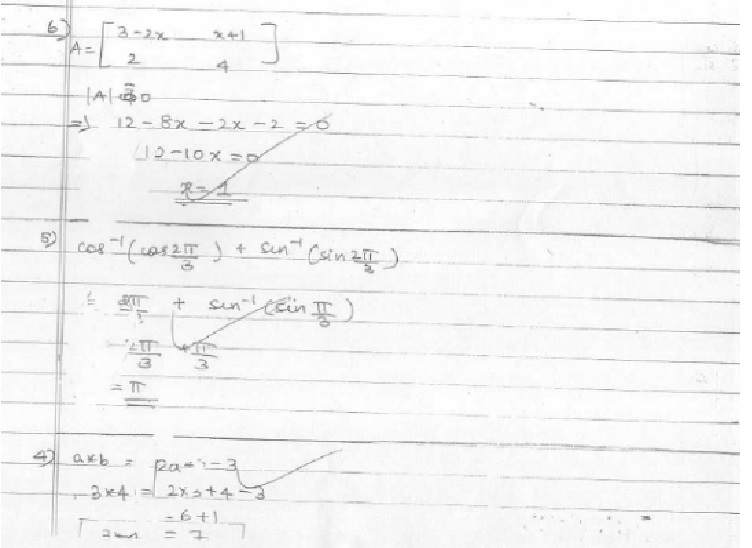 6)
A = [ 3-2x x+1
2 4 ]
|A| = 0
=> 12 - 8x - 2x - 2 = 0
10 - 10x = 0
x = 1
5) cos⁻¹(cos 2π/3) + sin⁻¹(sin 2π/3)
= 2π/3 + sin⁻¹(sin π/3)
2π/3 + π/3
= π
4) a*b = 2a + - 3
3*4 = 2x3+4-3
= 6+1
= 7